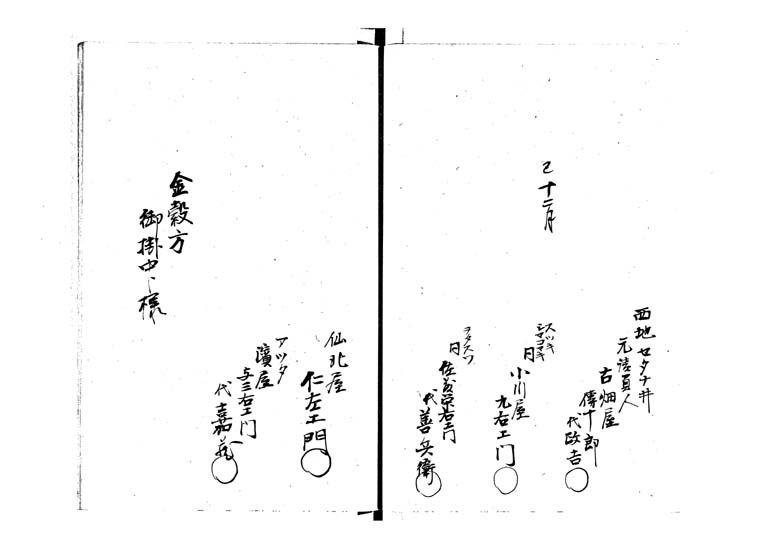 巳十二月
西地セタナ井
元請負人
古畑屋
傳十郎
代政吉
スツキ
シマコマキ
同
小川屋
九右エ门
ヲタスツ
同
佐藤栄右エ门
代善兵衛
仙北屋
仁左エ門
アツタ
濱屋
与三右エ门
代嘉蔵
金穀方
御掛中様